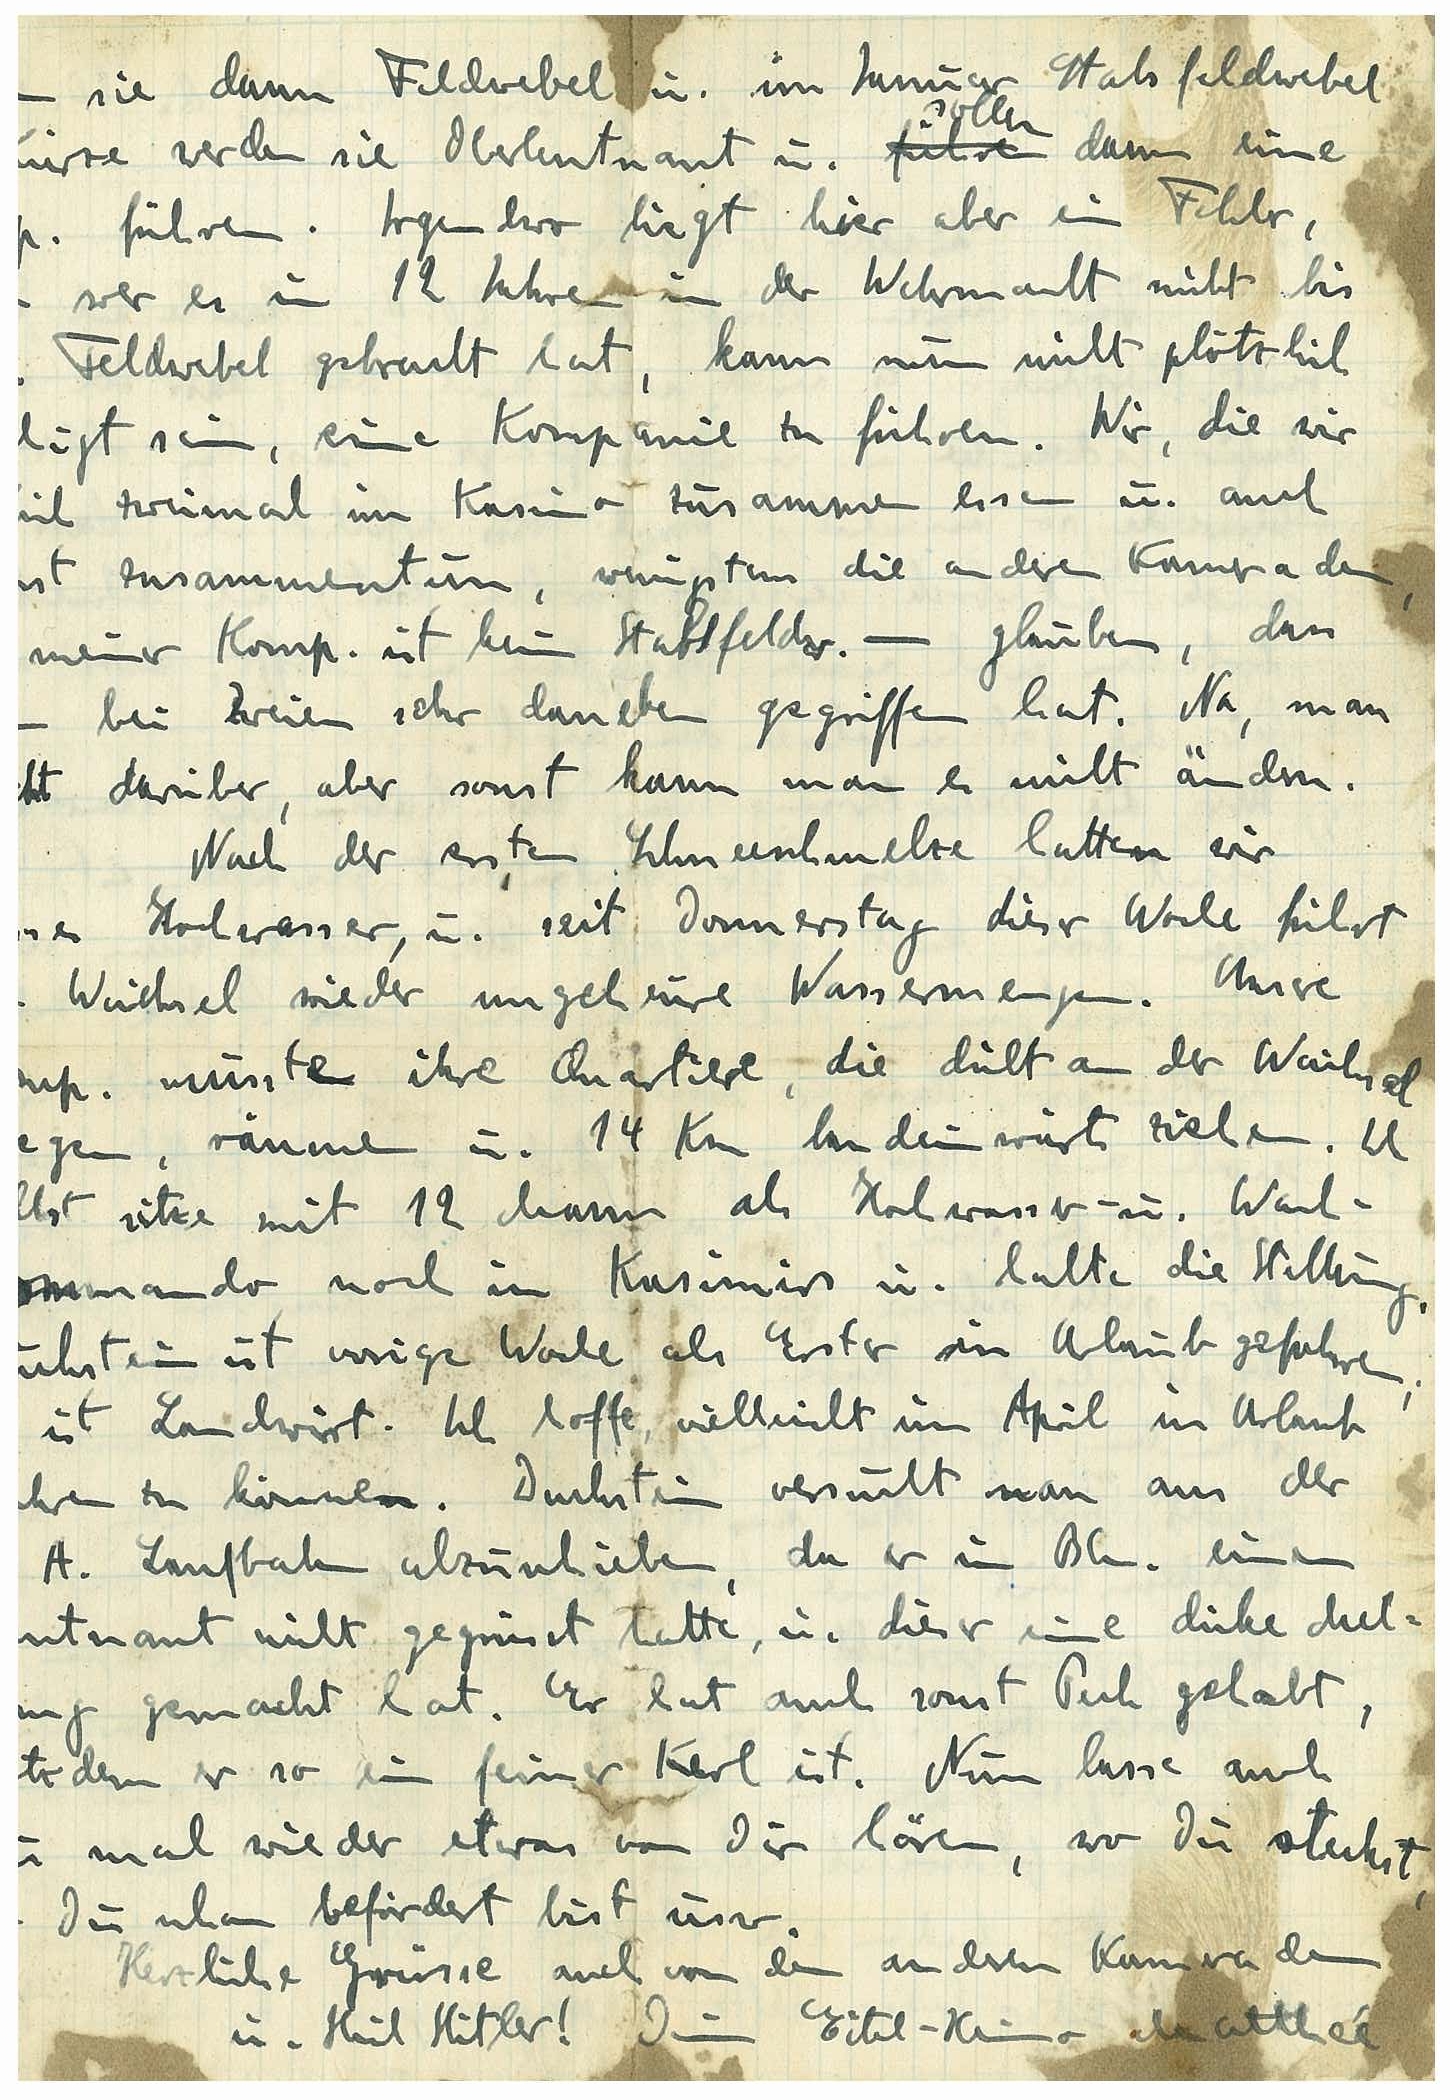 sie dann Feldwebel u. im Januar Stabsfeldwebel
werden sie Oberleutnant u. führen sollen dann eine
p. führen. Irgendwo liegt hier aber ein Fehler,
wer es in 12 Jahren in der Wehrmacht nicht bis
Feldwebel gebracht hat, kann nun nicht plötzlich
higt sein, eine Kompanie zu führen. Wir, die wir
zweimal im Kasino zusammen essen u. auch
st zusammentun, wenigstens die anderen Kameraden,
meiner Komp. ist kein Stabsfeldw. — glauben, dass
bei Zweien sehr daneben gegriffen hat. Na, man
cht darüber, aber sonst kann man es nicht ändern.
Nach der ersten Schneeschmelze hatten wir
es Hochwasser, u. seit Donnerstag dieser Woche führt
Weichsel wieder ungeheure Wassermengen. Unsere
mp. musste ihre Quartiere, die dicht an der Weichsel
egen, räumen u. 14 Km landeinwärts ziehen. Ich
lbst sitze mit 12 Mann als Hochwasser- u. Wach-
ommando noch in Kasimirs u. halte die Stellung.
uchstein ist vorige Woche als Erster in Urlaub gefahren,
ist Landwirt. Ich hoffe, vielleicht im April in Urlaub
hren zu können. Duchstein versucht man aus der
A. Laufbahn abzuschieben, da er in Bln. einen
utnant nicht gegrüsst hatte, u. dieser eine dicke Mel-
ung gemacht hat. Er hat auch sonst Pech gehabt,
tzdem er so ein feiner Kerl ist. Nun lasse auch
u mal wieder etwas von Dir hören, wo Du steckst,
Du schon befördert bist usw.
Herzliche Grüsse auch von den anderen Kameraden
u. Heil Hitler! Dein Eitel-Heino Matthée